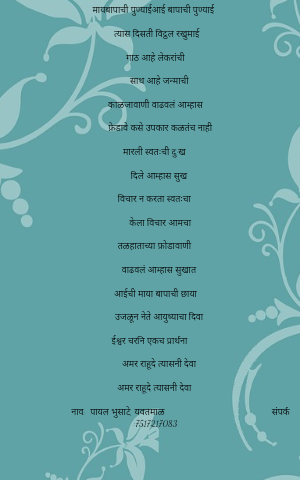 मायबापाची पुण्याईआई बापाची पुण्याई
त्यास दिसती विठ्ठल रखुमाई
गाठ आहे लेकरांची
साथ आहे जन्माची
काळजावाणी वाढवलं आम्हास
फ़ेडावे कसे उपकार कळतंच नाही
मारली स्वतःची दुःख
दिले आम्हास सुख
विचार न करता स्वतःचा
केला विचार आमचा
तळहाताच्या फ़ोडावाणी
वाढवलं आम्हास सुखात
आईची माया बापाची छाया
उजळून नेते आयुष्याचा दिवा
ईश्वर चरनि एकच प्रार्थना
अमर राहूदे त्यासनी देवा
अमर राहूदे त्यासनी देवा
नाव पायल भुसाटे यवतमाळ संपर्क
7517217083